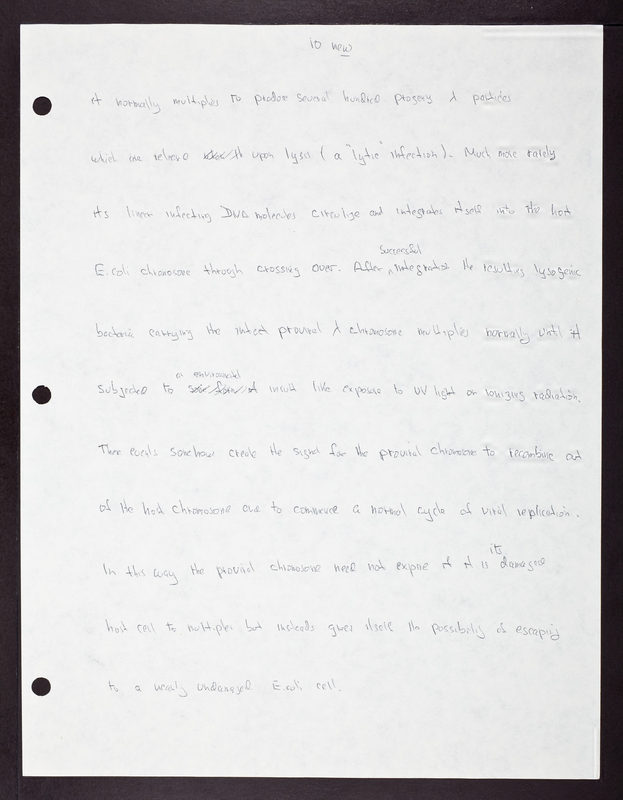 10 new
it normally multiplies to produce several hundred progeny λ particles
which are release upon lysis (a "lytic" infection). Much more rarely
its linear infecting DNA molecules circulize and integrates itself into the host
E. coli chromosome through crossing over. After successful integration the resulting lysogenic
bacteria carrying the intact proviral λ chromosome multiplies normally until it
subjected to an environmental insult like exposure to UV light or ionizing radiation.
These events somehow create the signal for the proviral chromosome to recombine out
of the host chromosome and to commence a normal cycle of viral replication.
In this way the proviral chromosome need not expire if it is its damaged
host cell to multiplies but insteads gives itself the possibility of escaping
to a nearby undamaged E. coli cell.